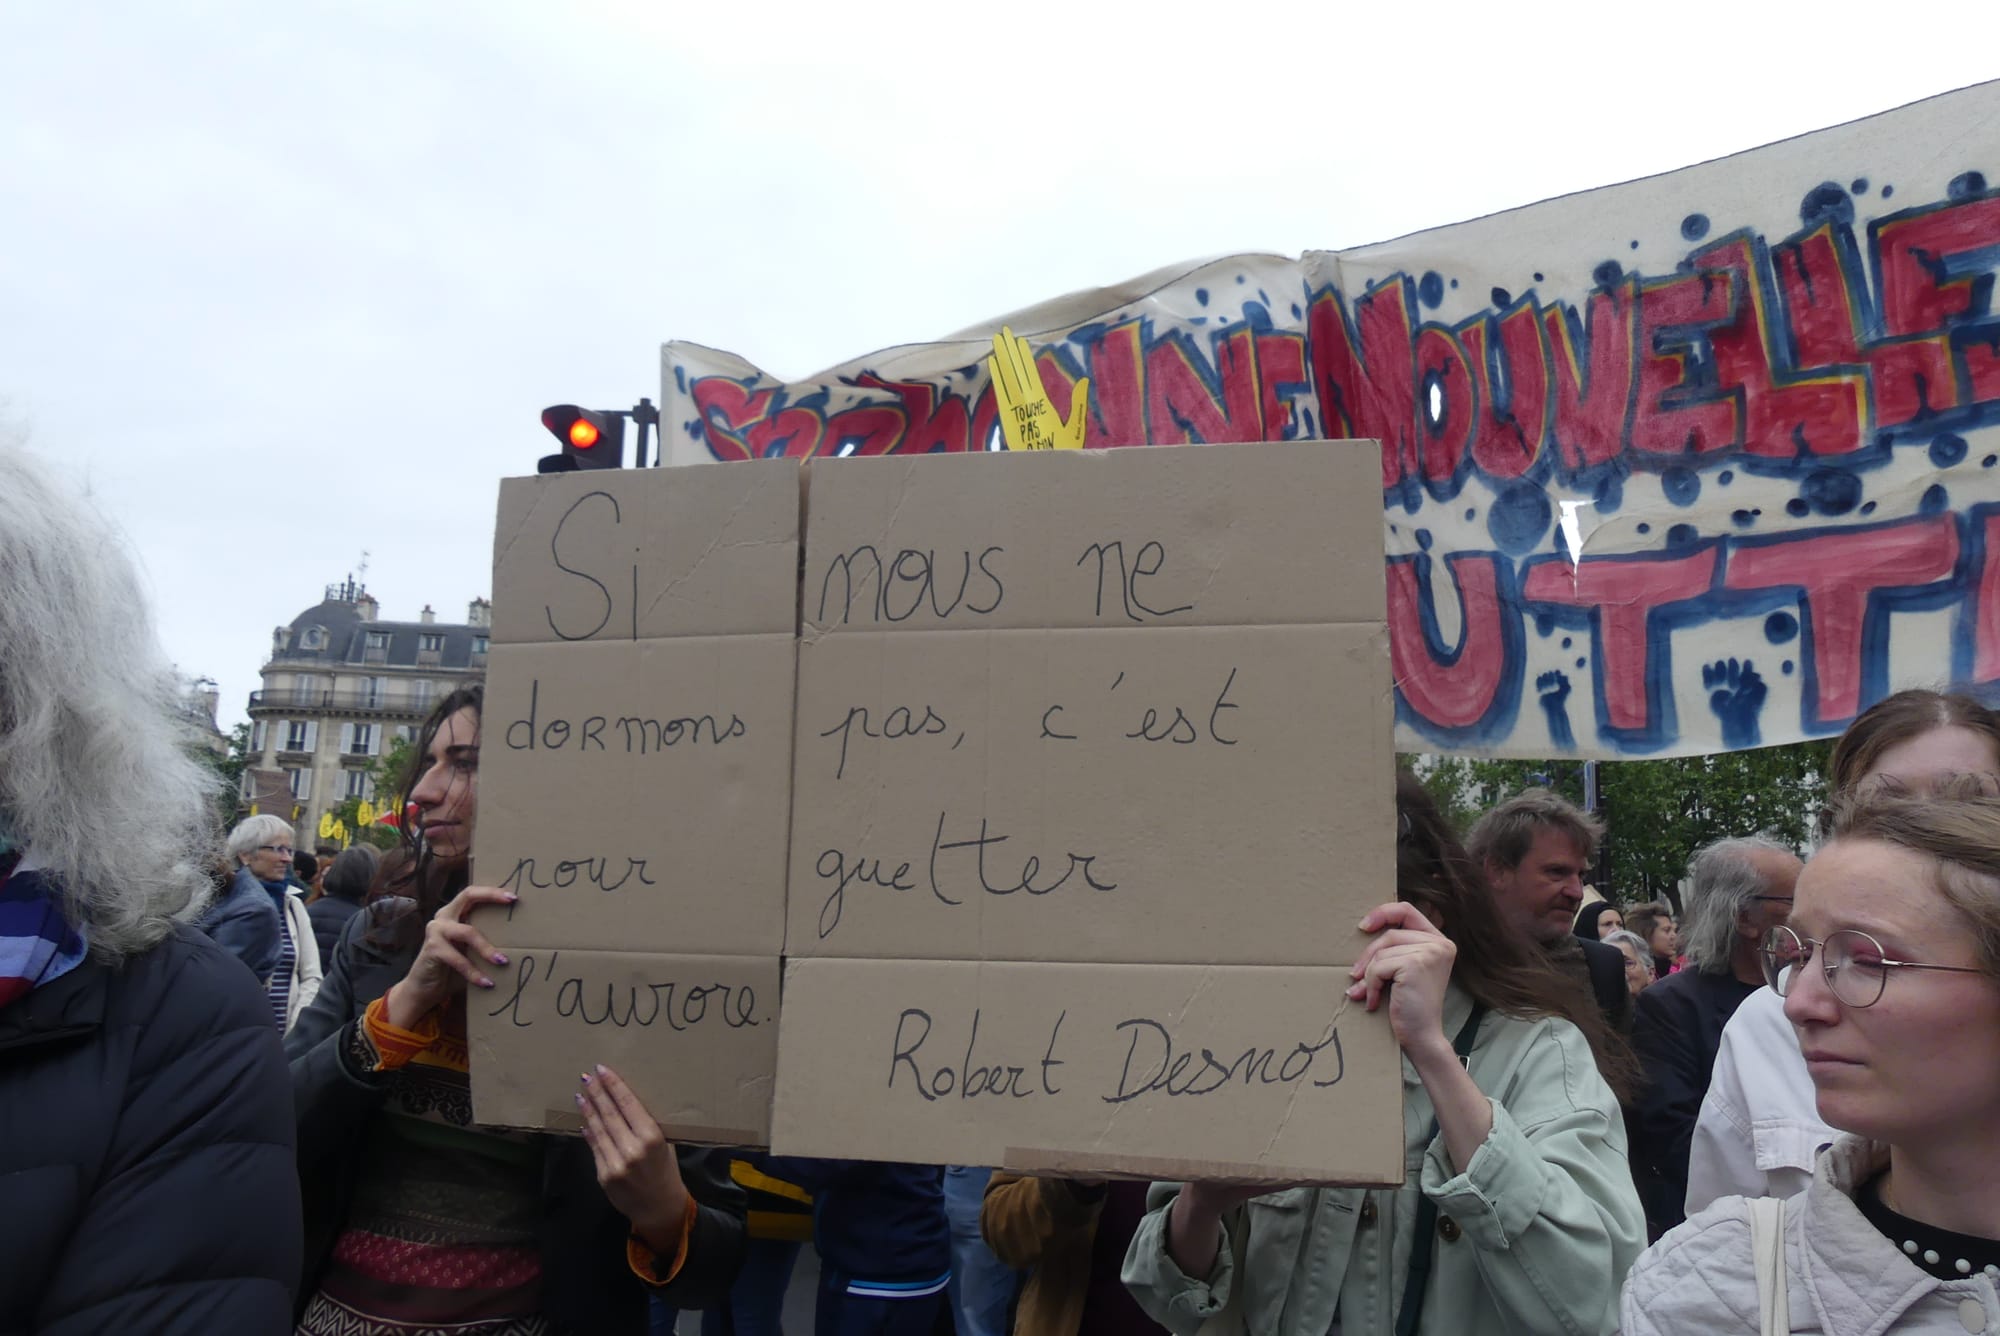 SORBONNE NOUVELLE
TOUCHE
PAS
A MON
UTTE
Si nous ne
dormons pas, c'est
pour guetter
l'aurore.
Robert Desnos